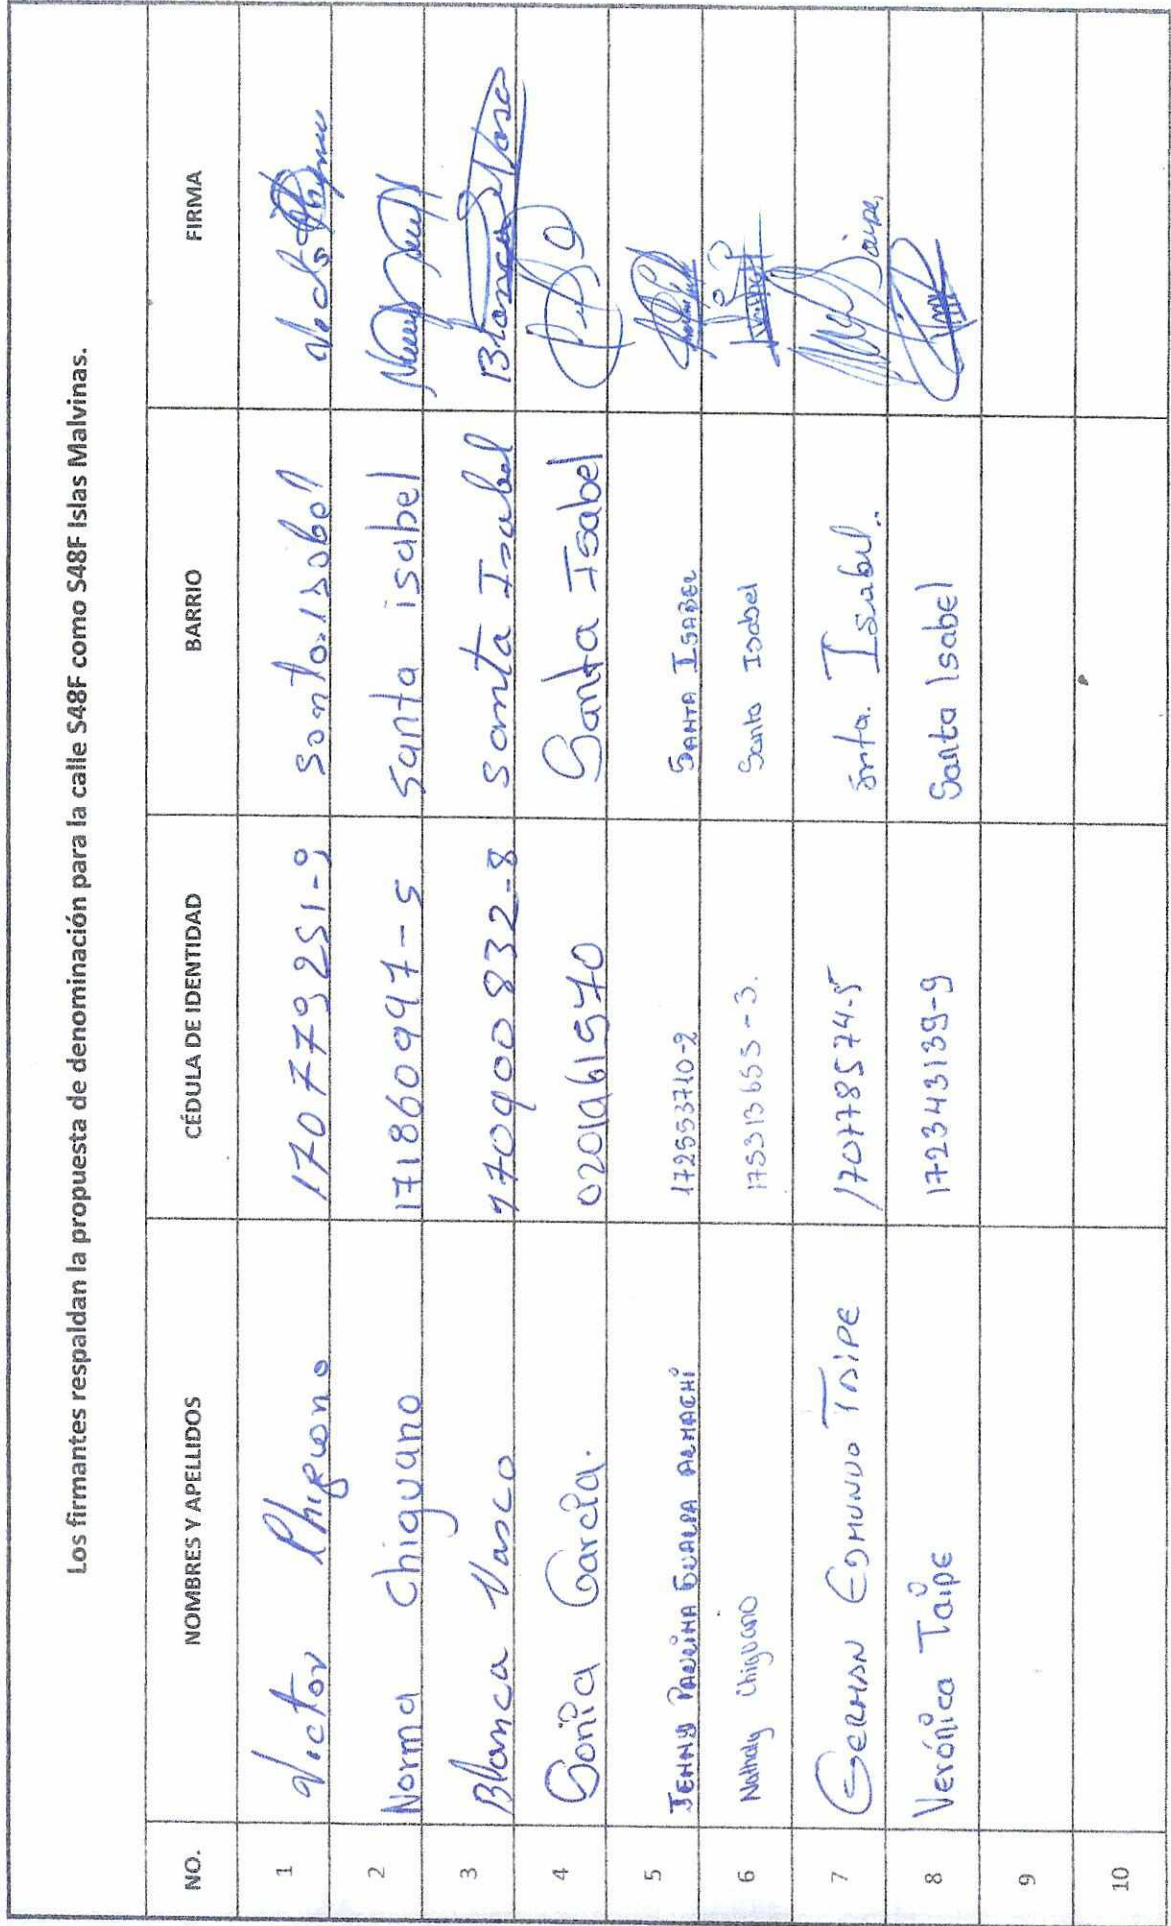 Los firmantes respaldan la propuesta de denominación para la calle S48F como S48F Islas Malvinas.
NO. NOMBRES Y APELLIDOS CÉDULA DE IDENTIDAD BARRIO FIRMA
1 Victor Chiguano 170779251-9 Santa isabel
2 Norma Chiguano 171860997-5 Santa isabel
3 Blanca Vasco 170900832-8 Santa Isabel Blanca Vasco
4 Sonia García. 0201961570 Santa Isabel
5 JENNY PAULINA GUALPA ALMACHI 172553710-2 SANTA ISABEL
6 Nathaly Chiguano 175313653-3. Santa Isabel
7 GERMAN EDMUNDO TAIPE 170778574-5 Snta. Isabel..
8 Verónica Taipe 172343139-9 Santa Isabel
9
10